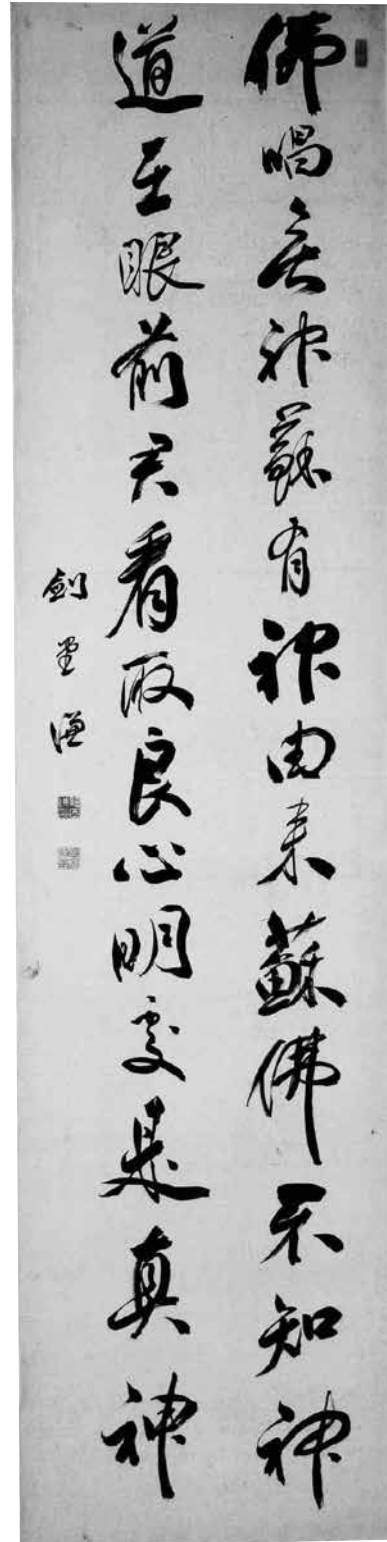 佛唱無神蘇有神由来蘇佛不知神
道在眼前君看取良心明處是真神
剣堂謙